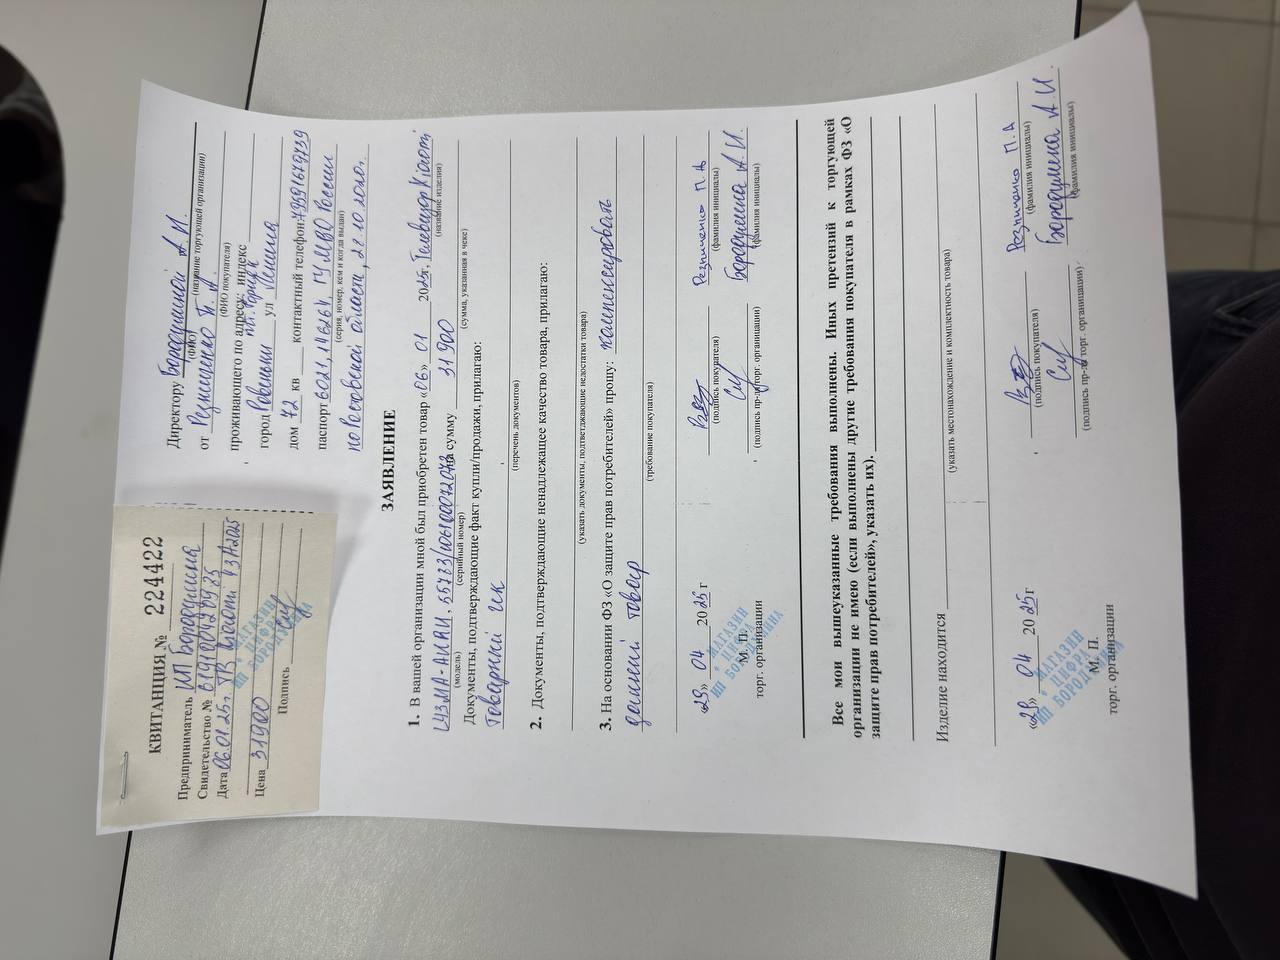 КВИТАНЦИЯ № 224422
Предприниматель ИП Бородушина
Свидетельство №
Дата 06.01.25г. ТВ Xiaomi
Цена 31900
Подпись
МАГАЗИН
* ЦИФРА *
ИП БОРОДУШИНА
Директору Бородушиной А.И.
(ФИО)
(название торгующей организации)
от Резниченко П. А.
(ФИО покупателя)
проживающего по адресу: индекс
город Ровеньки ул Ленина
дом 72 кв контактный телефон:
паспорт 6021, 146464, ГУ МВД России
(серия, номер, кем и когда выдан)
по Ростовской области, 28.10.2020.
ЗАЯВЛЕНИЕ
1. В вашей организации мной был приобретен товар «06» 01 2025г. Телевизор Xiaomi
(название изделия)
L43MA-AURU, на сумму 31900
(модель) (серийный номер) (сумма, указанная в чеке)
Документы, подтверждающие факт купли/продажи, прилагаю:
Товарный чек
(перечень документов)
2. Документы, подтверждающие ненадлежащее качество товара, прилагаю:
(указать документы, подтветждающие недостатки товара)
3. На основании ФЗ «О защите прав потребителей» прошу: компенсировать
(требование покупателя)
данный товар
«29» 04 2025 г Резниченко П.А
(подпись покупателя) (фамилия инициалы)
Бородушина А.И.
М. П. (подпись пр-ля торг. организации) (фамилия инициалы)
торг. организации
МАГАЗИН
* ЦИФРА *
ИП БОРОДУШИНА
Все мои вышеуказанные требования выполнены. Иных претензий к торгующей
организации не имею (если выполнены другие требования покупателя в рамках ФЗ «О
защите прав потребителей», указать их).
Изделие находится
(указать местонахождение и комплектность товара)
«29» 04 2025г Резниченко П.А
(подпись покупателя) (фамилия инициалы)
Бородушина А.И.
М. П. (подпись пр-ля торг. организации) (фамилия инициалы)
торг. организации
МАГАЗИН
* ЦИФРА *
ИП БОРОДУШИНА